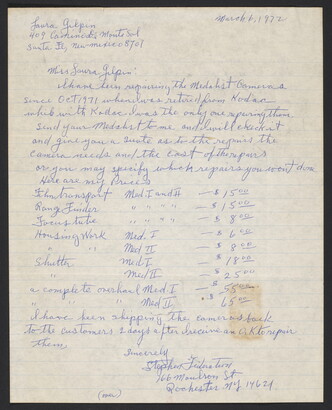 March 6, 1972
Laura Gilpin
409 Camino del Monte Sol
Santa Fe, New mexico 87501
Miss Laura Gilpin:
I have been repairing the Medalist Cameras
since OCT 1971 when I was retired from Kodak
while with Kodak I was the only one repairing them.
Send your Medalist to me and I will check it
and give you a quote as to the repairs the
camera needs and the cost of the repairs
or you may specify which repairs you want done
Here are my Prices
Film transport Med. I and II — $15.00
Range Finder " " " " — $15.00
Focus tube " " " " — $8.00
Housing Work Med. I — $6.00
" " Med II — $8.00
Shutter Med I — $18.00
Med II — $25.00
a complete overhaul Med I — $55.00
" " " Med II — $65.00
I have been shipping the cameras back
to the customers 2 days after I receive an O.K to repair
them.
Sincerely
Stephen
166 St
Rochester NY 14621
(over)